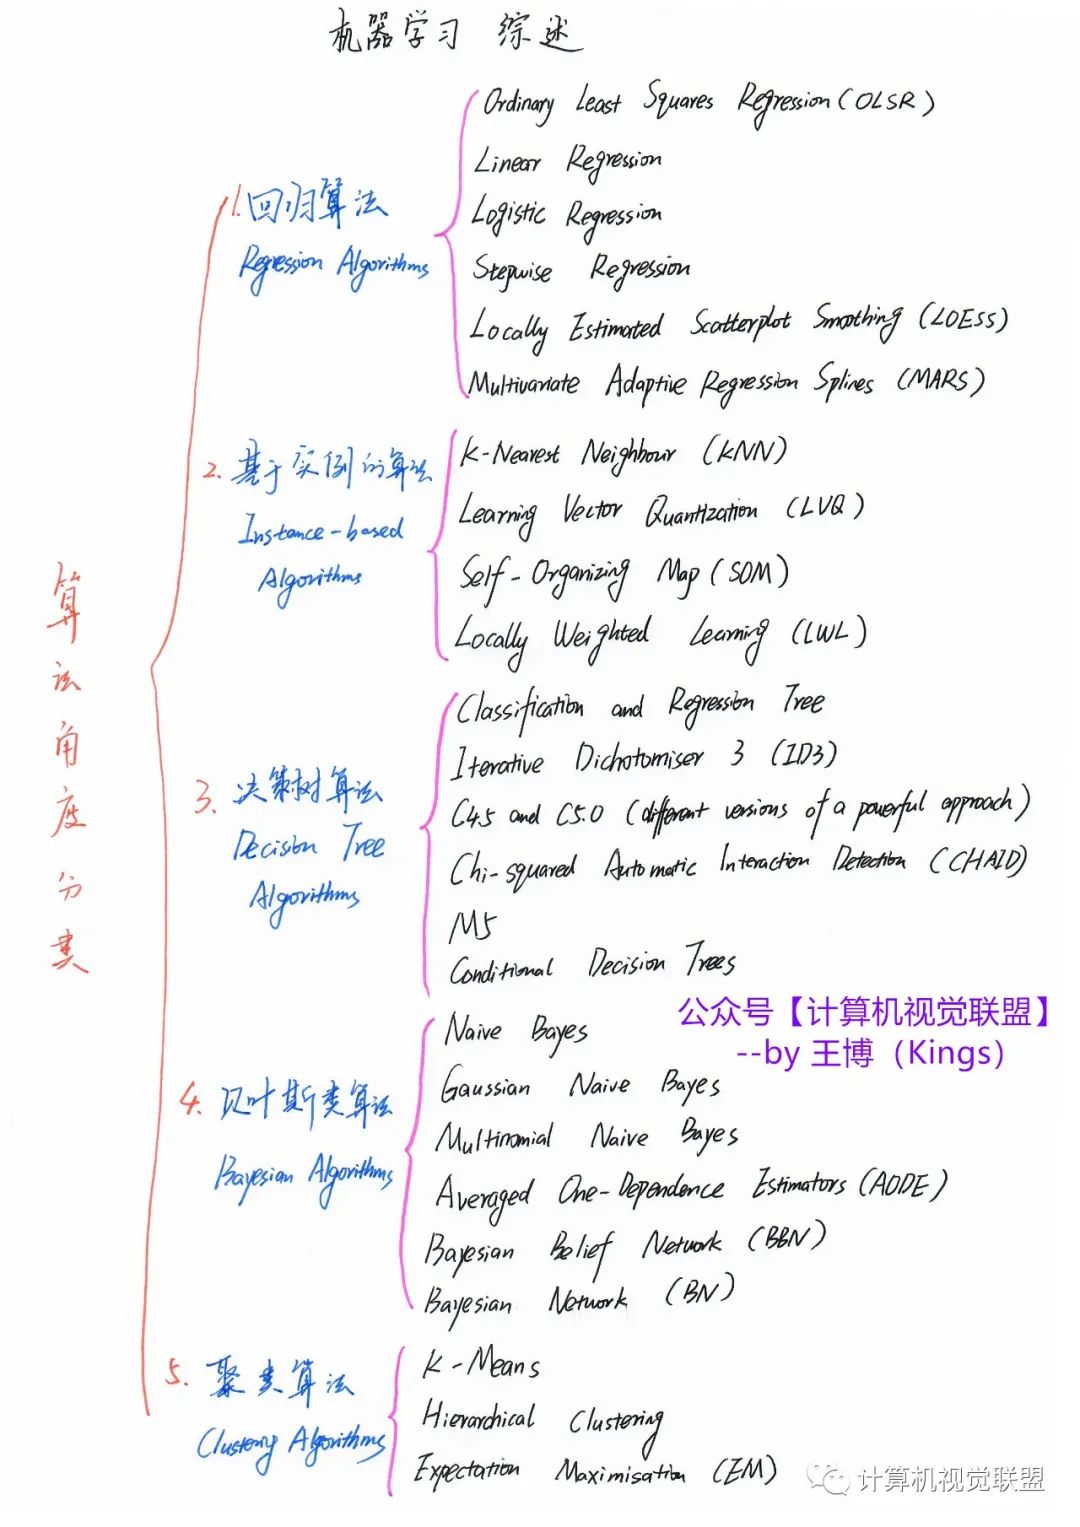 机器学习 综述
算法角度分类
1. 回归算法
Regression Algorithms
Ordinary Least Squares Regression (OLSR)
Linear Regression
Logistic Regression
Stepwise Regression
Locally Estimated Scatterplot Smoothing (LOESS)
Multivariate Adaptive Regression Splines (MARS)
2. 基于实例的算法
Instance-based
Algorithms
K-Nearest Neighbour (KNN)
Learning Vector Quantization (LVQ)
Self-Organizing Map (SOM)
Locally Weighted Learning (LWL)
3. 决策树算法
Decision Tree
Algorithms
Classification and Regression Tree
Iterative Dichotomiser 3 (ID3)
C4.5 and C5.0 (different versions of a powerful approach)
Chi-squared Automatic Interaction Detection (CHAID)
M5
Conditional Decision Trees
公众号【计算机视觉联盟】
--by 王博（Kings）
4. 贝叶斯类算法
Bayesian Algorithms
Naive Bayes
Gaussian Naive Bayes
Multinomial Naive Bayes
Averaged One-Dependence Estimators (AODE)
Bayesian Belief Network (BBN)
Bayesian Network (BN)
5. 聚类算法
Clustering Algorithms
K-Means
Hierarchical Clustering
Expectation Maximisation (EM)
计算机视觉联盟